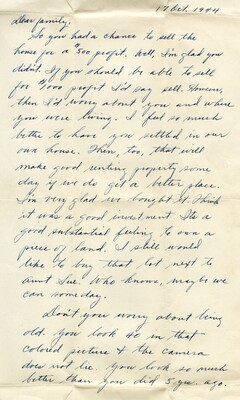 17 Oct. 1944
Dear family,
So you had a chance to sell the
house for a $500 profit. Well, I'm glad you
didn't. If you should be able to sell
for $1000 profit I'd say sell. However,
then I'd worry about you and where
you were living. I feel so much
better to have you settled in our
own house. Then, too, that will
make good renting property some
day if we do get a better place.
I'm very glad we bought it. I think
it was a good investment. It's a
good substantial feeling to own a
piece of land. I still would
like to buy that lot next to
aunt Sue. Who knows, maybe we
can someday.
Don't you worry about being
old. You look 40 in that
colored picture & the camera
does not lie. You look so much
better than you did 5 yrs. ago.